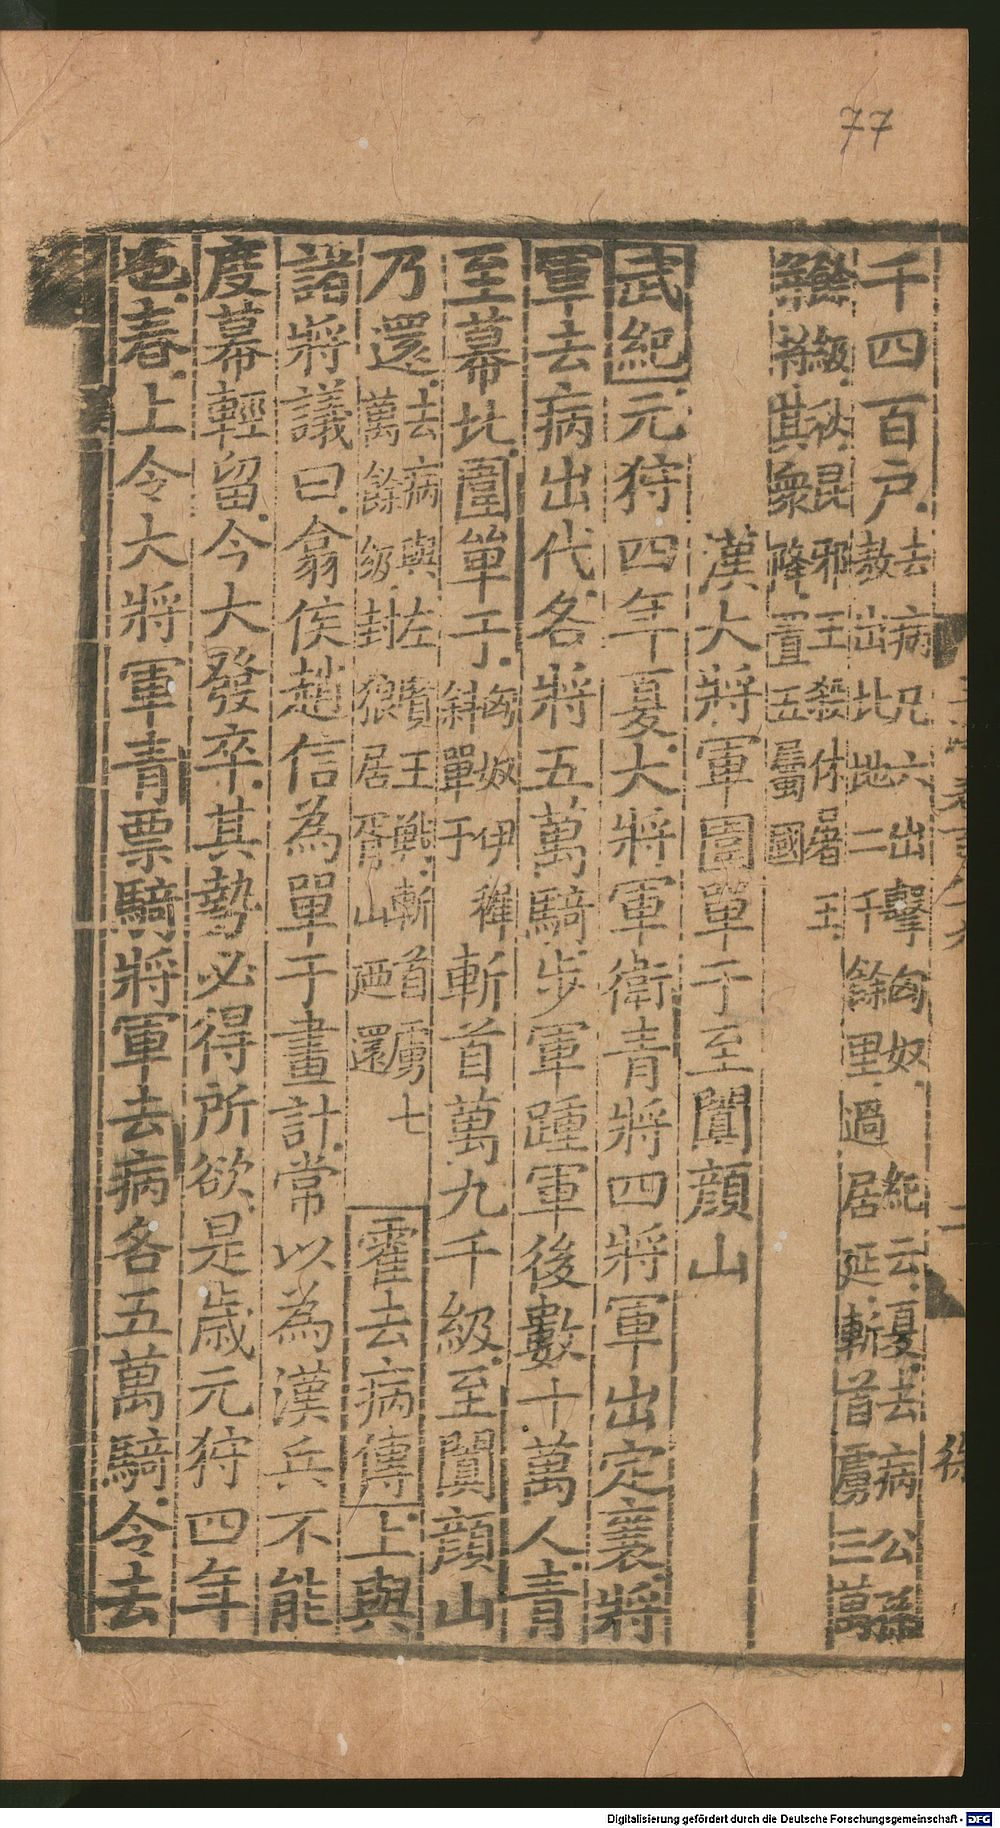 77
千四百户去病兄六出擊匈奴紀云夏去病公孫
敖出北地二千餘里過居延斬首虜三萬
餘級秋昆邪王殺休屠王
并將其衆降置五屬國
漢大將軍圍單于至闐顔山
武紀元狩四年夏大將軍衛青將四將軍出定襄將
軍去病出代各將五萬騎步軍踵軍後數十萬人青
至幕北圍單于匈奴伊穉斜單于斬首萬九千級至闐顔山
乃還去病與左賢王戰斬首虜七萬餘級封狼居胥山廼還霍去病傳上與
諸將議曰翕侯趙信為單于畫計常以為漢兵不能
度幕輕留今大發卒其勢必得所欲是歲元狩四年
也春上令大將軍青票騎將軍去病各五萬騎令去
Digitalisierung gefördert durch die Deutsche Forschungsgemeinschaft - DFG